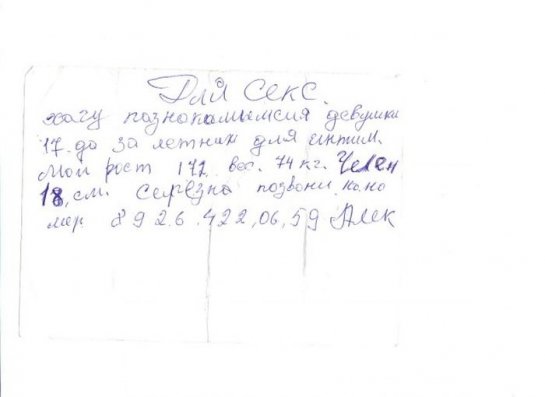 Для секс.
хачу познокамымсия девушки
17. до 30 летних для интим.
Мой рост 172 вес. 74 кг. Челен
18, см. Серёзна позвони. на. но
мер 8 9 2.6.422,06,59 Алек